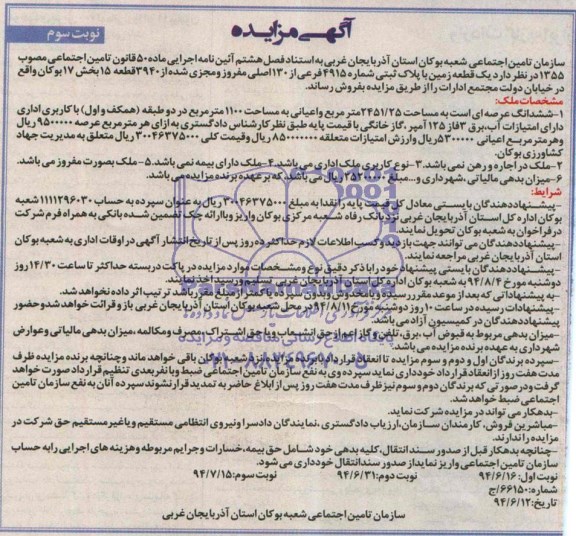 آگهی مزایده
نوبت سوم
سازمان تامین اجتماعی شعبه بوکان استان آذربایجان غربی به استناد فصل هشتم آئین نامه اجرایی ماده ۵۰ قانون تامین اجتماعی مصوب
۱۳۵۵ در نظر دارد یک قطعه زمین با پلاک ثبتی شماره ۴۹۱۵ فرعی از ۱۳۰ اصلی مفروز و مجزی شده از ۳۹۴۰ قطعه ۱۵ بخش ۱۷ بوکان واقع
در خیابان دولت مجتمع ادارات را از طریق مزایده بفروش رساند.
مشخصات ملک:
۱-ششدانگ عرصه ای است به مساحت ۲۴۵۱/۲۵ متر مربع واعیانی به مساحت ۱۱۰۰ مترمربع در دو طبقه (همکف و اول) با کاربری اداری
دارای امتیازات آب، برق ۳ فاز ۱۲۵ آمپر ،گاز خانگی با قیمت پایه طبق نظر کارشناس دادگستری به ازای هر مترمربع عرصه ۹۵۰۰۰۰۰ ریال
وهر مترمربع اعیانی ۵۳۰۰۰۰۰ ریال وارزش امتیازات متعلقه ۸۵۰۰۰۰۰۰ ریال وقیمت کلی ۳۰۰۴۶۳۷۵۰۰۰ ریال متعلق به مدیریت جهاد
کشاورزی بوکان.
۲-ملک در اجاره و رهن نمی باشد. ۳- نوع کاربری ملک اداری می باشد. ۴- ملک دارای بیمه نمی باشد. ۵- ملک بصورت مفروز می باشد.
۶-میزان بدهی مالیاتی ،شهرداری و...مبلغ ریال می باشد، که بر عهده برنده مزایده می باشد.
شرایط:
-پیشنهاددهندگان بایستی معادل کل قیمت پایه را نقدا به مبلغ ۳۰۰۴۶۳۷۵۰۰۰ ریال به عنوان سپرده به حساب ۱۱۱۱۲۹۶۰۳۰ شعبه
بوکان اداره کل استان آذربایجان غربی نزد بانک رفاه شعبه مرکزی بوکان واریز ویا ارائه چک تضمین شده بانکی به همراه فرم شرکت
در فراخوان به شعبه بوکان تحویل نمایند.
-پیشنهاددهندگان می توانند جهت بازدید و کسب اطلاعات لازم حداکثر ده روز پس از تاریخ انتشار آگهی در اوقات اداری به شعبه بوکان
استان آذربایجان غربی مراجعه نمایند.
-پیشنهاددهندگان بایستی پیشنهاد خود را با ذکر دقیق نوع و مشخصات موارد مزایده در پاکت دربسته حداکثر تا ساعت ۱۴/۳۰ روز
دوشنبه مورخ ۹۴/۸/۴ به شعبه بوکان اداره کل استان آذربایجان غربی تسلیم و رسید اخذ نمایند.
-به پیشنهاداتی که بعد از موعد مقرر رسیده ویا مخدوش وبدون سپرده یا کمتر از میزان مقرر باشد ترتیب اثر داده نخواهد شد.
-پیشنهادات رسیده در ساعت ۱۰ روز دوشنبه مورخ ۹۴/۸/۱۱ در محل شعبه بوکان استان آذربایجان غربی باز و قرائت خواهد شد وحضور
پیشنهاددهندگان در کمیسیون آزاد می باشد.
-میزان بدهی مربوط به قبوض آب،برق، تلفن و گاز اعم از حق انشعاب ویا حق اشتراک، مصرف ومکالمه، میزان بدهی مالیاتی وعوارض
شهرداری به عهده برنده مزایده می باشد.
-سپرده برندگان اول و دوم و سوم مزایده تا انعقاد قرارداد با برنده مزایده نزد شعبه بوکان باقی خواهد ماند وچنانچه برنده مزایده ظرف
مدت هفت روز از انعقاد قرارداد خودداری نماید سپرده وی به نفع سازمان تامین اجتماعی ضبط وبا نفر بعدی تنظیم قرارداد صورت خواهد
گرفت ودر صورتی که برندگان دوم و سوم نیز ظرف مدت هفت روز پس از ابلاغ حاضر به تمدید قرار نشوند سپرده آنان به نفع سازمان تامین
اجتماعی ضبط خواهد شد.
-بدهکار می تواند در مزایده شرکت نماید.
-مباشرین فروش، کارمندان سازمان،ارزیاب دادگستری ،نمایندگان دادسرا ونیروی انتظامی مستقیم ویاغیرمستقیم حق شرکت در
مزایده را ندارند.
-چنانچه بدهکار قبل از صدور سند انتقال، کلیه بدهی خود شامل حق بیمه، خسارات وجرایم مربوطه وهزینه های اجرایی را به حساب
سازمان تامین اجتماعی واریز نماید از صدور سند انتقال خودداری می شود.
نوبت اول: ۹۴/۶/۱۶ نوبت دوم: ۹۴/۶/۳۱ نوبت سوم: ۹۴/۷/۱۵
شماره: ۶۶۱۵۰/ج
تاریخ: ۹۴/۶/۱۲
سازمان تامین اجتماعی شعبه بوکان استان آذربایجان غربی